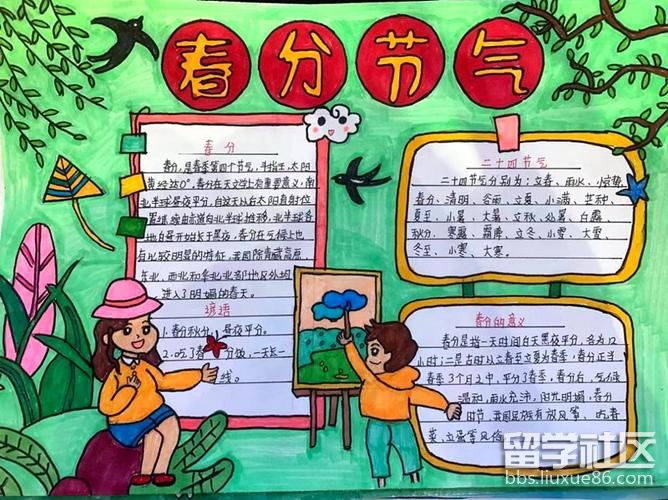 春分节气
春分
春分，是春季第四个节气，斗指壬，太阳
黄经达0°，春分在天文学上有重要意义，南
北半球昼夜平分，自这天以后太阳直射位
置继续由赤道向北半球推移，北半球各
地白昼开始长于黑夜，春分在气候上也
有比较明显的特征，我国除青藏高原
东北，西北和华北北部地区外均
进入了明媚的春天。
谚语
1.春分秋分，昼夜平分。
2.吃了春分饭，一天长一
线。
二十四节气
二十四节气分别为：立春、雨水、惊蛰、
春分、清明、谷雨、立夏、小满、芒种、
夏至、小暑、大暑、立秋、处暑、白露、
秋分、寒露、霜降、立冬、小雪、大雪、
冬至、小寒、大寒。
春分的意义
春分是指一天时间白天黑夜平分，各为12
小时；二是古时以立春至立夏为春季，春分正当
春季3个月之中，平分了春季，春分后，气候
温和，雨水充沛，阳光明媚，春分
时节，我国民族有放风筝、吃春
菜、立蛋等风俗
留学社区
bbs.liuxue86.com